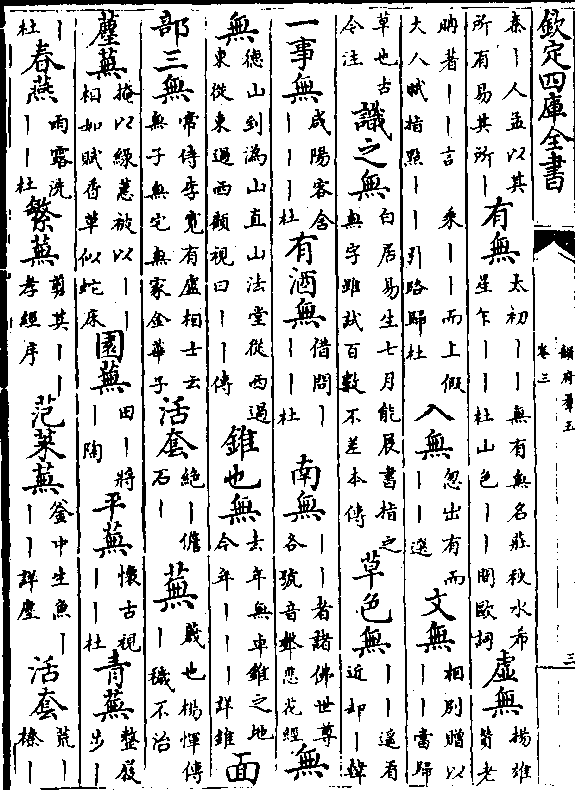 欽定四庫全書
韻府羣玉
卷三
三
泰丨人孟以其
所有易其所丨
有無
太初丨丨無有無名莊秋水希
星乍丨丨杜山色丨丨間歐詞
虛無
揚雄
贊老
呐著丨丨言 乘丨丨而上假
大人賦指點丨丨引路歸杜
入無
忽出有而
丨丨選
文無
相別贈以
丨丨當歸
草也古
今注
識之無
白居易生七月能展書指之
無字雖試百數不差本傳
草色無
丨丨遙看
近却丨韓
一事無
咸陽客舍
丨丨丨杜
有酒無
借問丨
丨丨杜
南無
丨丨者諸佛世尊
各號音聲悲花經
無
無
德山到溈山直山法堂從西過
東從東過西顧視曰丨丨傳
錐也無
去年無卓錐之地
今年丨丨丨丨詳錐
面
部三無
常傳李寬有盧相士云
無子無宅無家金華子
活套
絶丨儋
石丨
蕪
薉也楊惲傳
丨穢不治
蘼蕪
掩以綠蕙被以丨丨
相如賦香草似蛇床
園蕪
田丨將
丨陶
平蕪
懷古視
丨丨杜
青蕪
整履
步丨
丨
杜
春燕
雨露洗
丨丨杜
繁蕪
剪其丨丨
孝經序
范萊蕪
釜中生魚丨
丨丨詳塵
活套
荒丨
榛丨